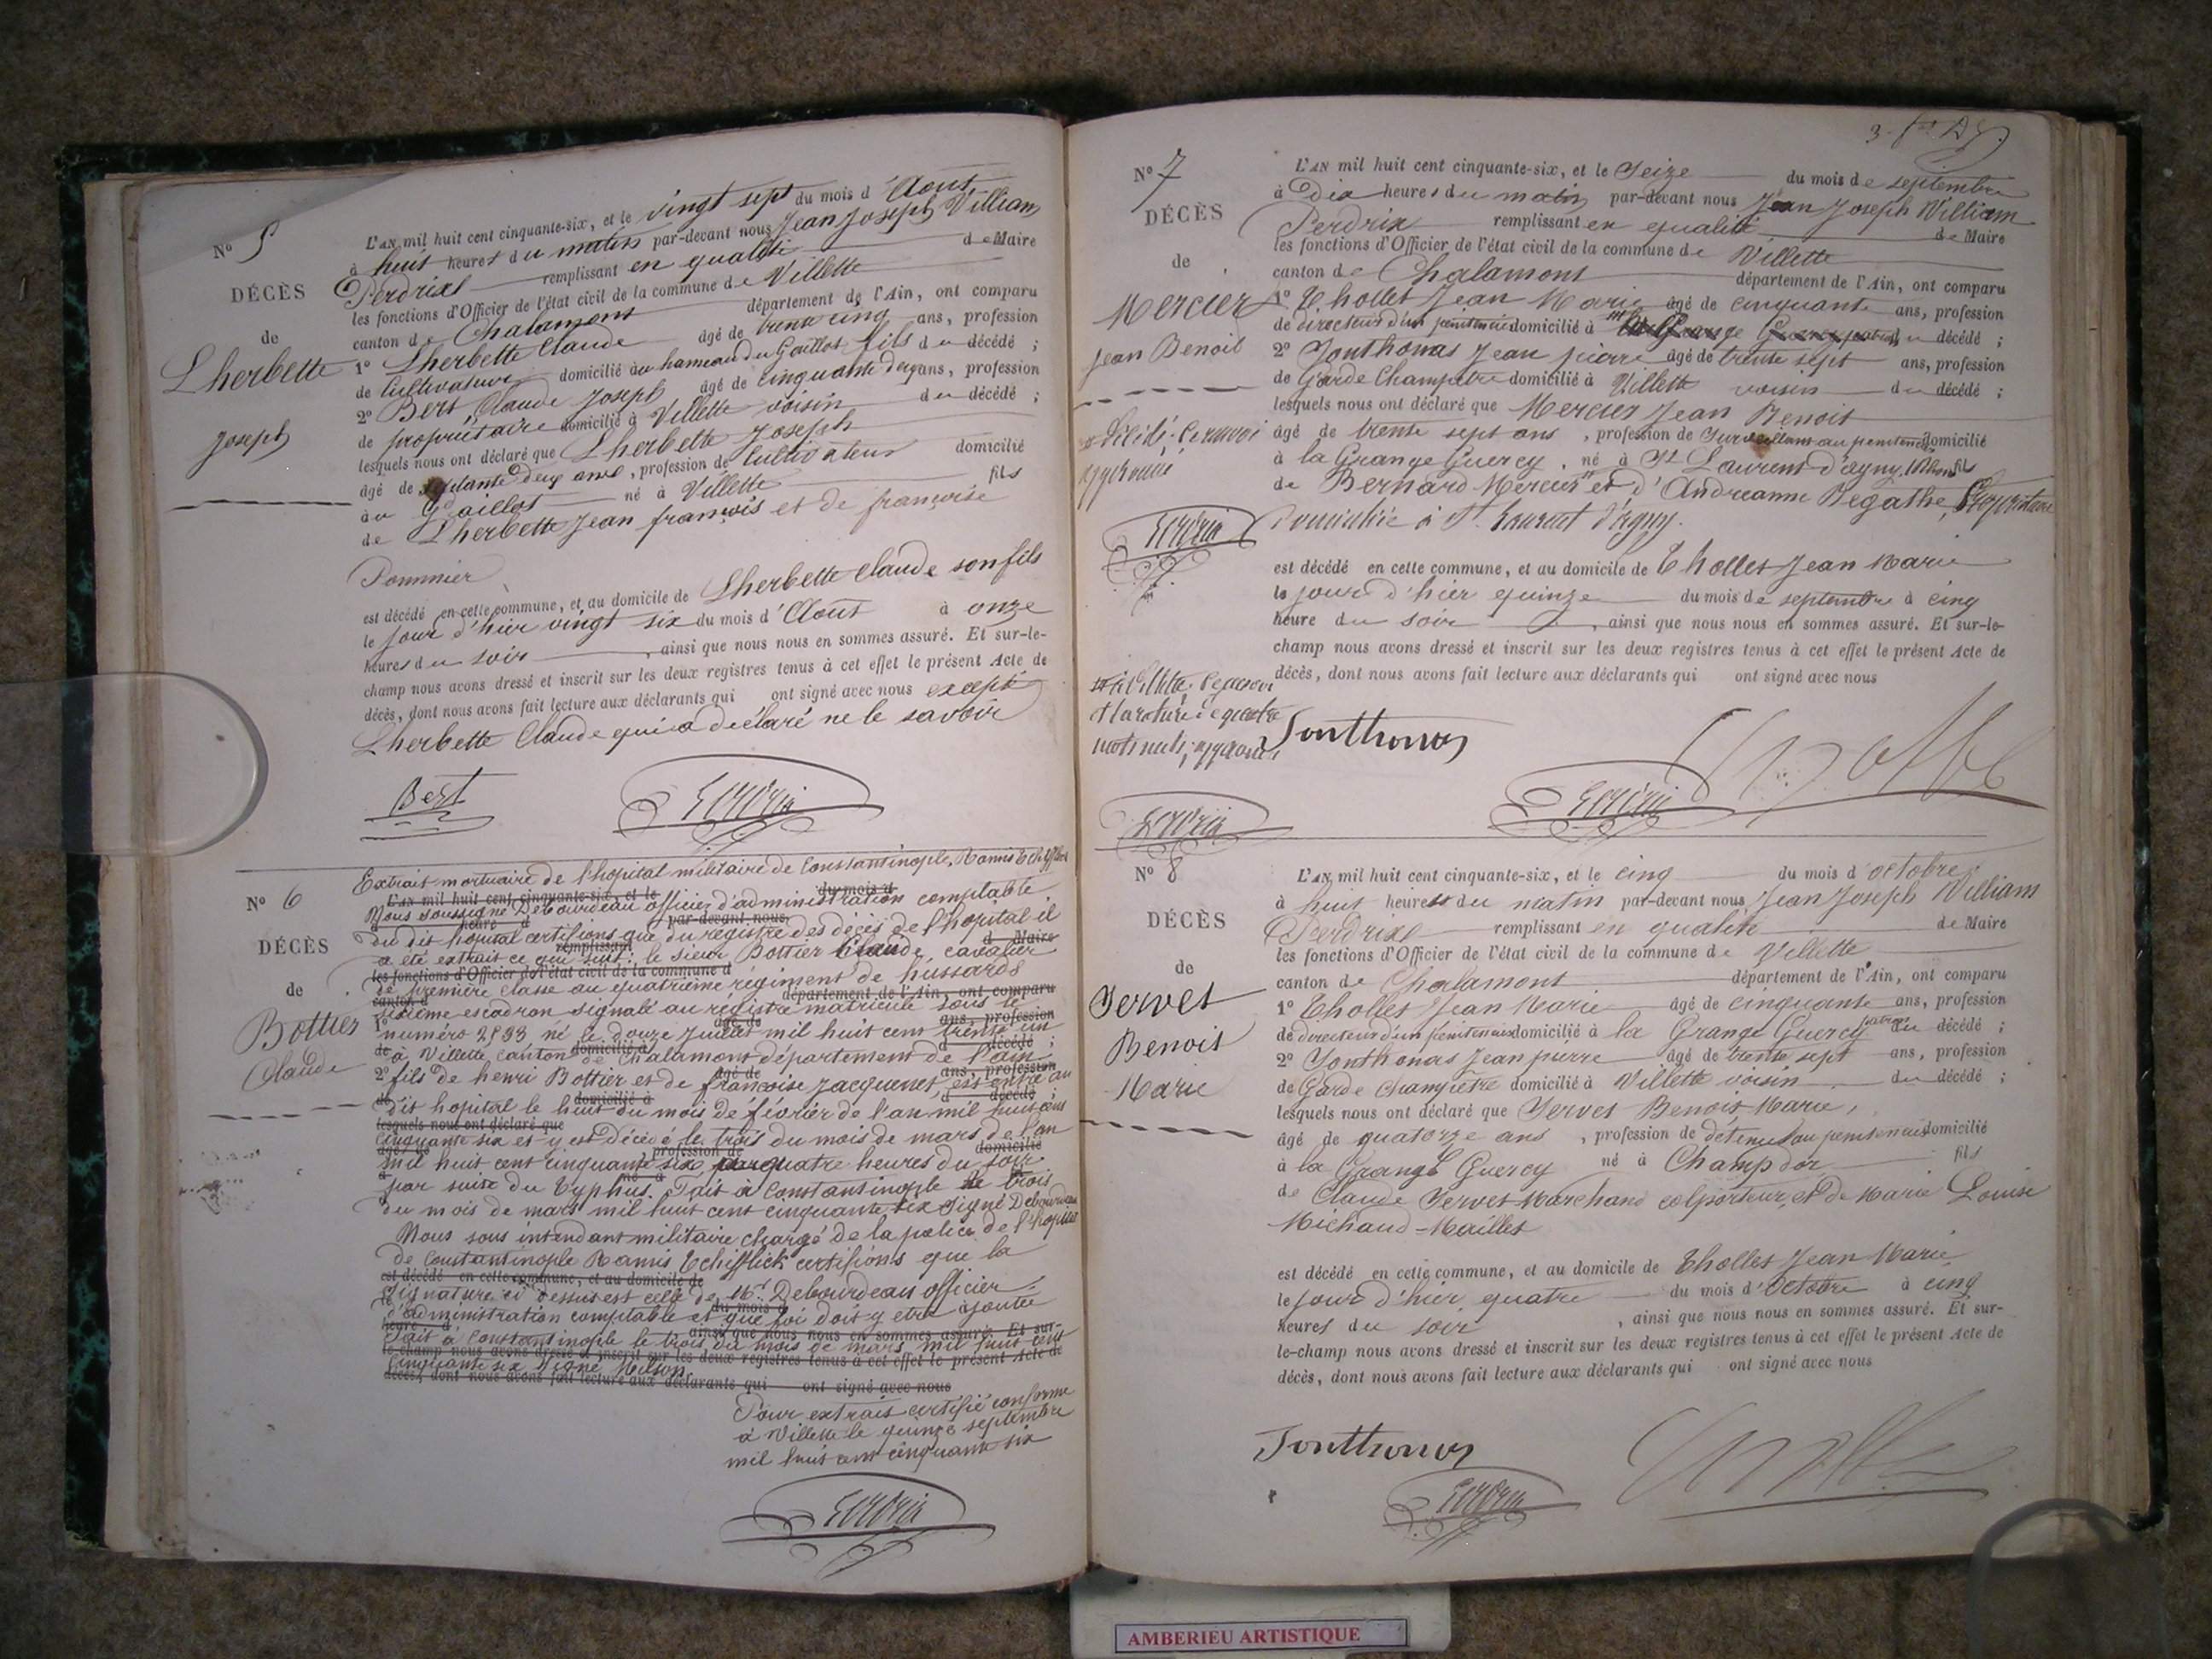 N° 5
DÉCÈS
de
Lherbette
Joseph
L'AN mil huit cent cinquante-six, et le vingt sept du mois d'Aout
à huit heures du matin par-devant nous Jean Joseph William
Perdrix remplissant en qualité de Maire
les fonctions d'Officier de l'état civil de la commune de Villette
canton de Chalamont département de l'Ain, ont comparu
1° Lherbette Claude âgé de trente cinq ans, profession
de Cultivateur domicilié au hameau du Gaillot fils du décédé ;
2° Bert Claude Joseph âgé de cinquante deux ans, profession
de propriétaire domicilié à Villette voisin du décédé ;
lesquels nous ont déclaré que Lherbette Joseph
âgé de deux ans, profession de Cultivateur domicilié
au Gaillot né à Villette fils
de Lherbette Jean françois et de françoise
Pommier
est décédé en cette commune, et au domicile de Lherbette Claude son fils
le jour d'hier vingt six du mois d'Aout à onze
heures du soir, ainsi que nous nous en sommes assuré. Et sur-le-
champ nous avons dressé et inscrit sur les deux registres tenus à cet effet le présent Acte de
décès, dont nous avons fait lecture aux déclarants qui ont signé avec nous excepté
Lherbette Claude qui a déclaré ne le savoir
Bert
N° 6
DÉCÈS
de
Bottier
Claude
Extrait mortuaire de l'hopital militaire de Constantinople, Ramis
L'AN mil huit cent cinquante-six, et le du mois d
Nous soussigné Debourdeau officier d'administration comptable
heure d par-devant nous
du dit hopital certifions que du registre des décès de l'hopital il
remplissant d Maire
a été extrait ce qui suit : le sieur Bottier Claude, cavalier
les fonctions d'Officier de l'état civil de la commune d
de première classe au quatrième régiment de hussards
canton d département de l'Ain, ont comparu
sixième escadron signalé au régistre matricule sous le
1° âgé de ans, profession
numéro 2893, né le douze Juillet mil huit cent trente un
de domicilié à d décédé ;
à Villette, canton de Chalamont département de l'ain
2° âgé de ans, profession
fils de henri Bottier et de françoise Jacquenet, est entré au
de domicilié à d décédé
dit hopital le huit du mois de février de l'an mil huit cent
lesquels nous ont déclaré que
cinquante six et y est décédé le trois du mois de mars de l'an
âgé de profession de domicilié
mil huit cent cinquante six quatre heures du soir
par suite du Typhus. Fait à Constantinople le trois
du mois de mars mil huit cent cinquante six signé Debourdeau
Nous sous intendant militaire chargé de la police de l'hopital
de Constantinople Ramis Tchifflick certifions que la
est décédé en cette commune, et au domicile de
signature ci dessus est celle de Mr. Debourdeau officier
du mois d
d'administration comptable et que foi doit y etre ajoutée
heure d ainsi que nous nous en sommes assuré. Et sur-
Fait à Constantinople le trois du mois de mars mil huit cent
le champ nous avons dressé et inscrit sur les deux registres tenus à cet effet le présent Acte de
cinquante six signé
décès, dont nous avons fait lecture aux déclarants qui ont signé avec nous
Pour extrait certifié conforme
à Villette le quinze septembre
mil huit cent cinquante six
N° 7
DÉCÈS
de
Mercier
Jean Benoit
L'AN mil huit cent cinquante-six, et le Seize du mois de septembre
à Dix heures du matin par-devant nous Jean Joseph William
Perdrix remplissant en qualité de Maire
les fonctions d'Officier de l'état civil de la commune de Villette
canton de Chalamont département de l'Ain, ont comparu
1° Thollet Jean Marie âgé de cinquante ans, profession
de directeur d'un penitencier domicilié à du décédé ;
2° Jonthonas Jean pierre âgé de trente sept ans, profession
de Garde Champetre domicilié à Villette voisin du décédé ;
lesquels nous ont déclaré que Mercier Jean Benoit
âgé de trente sept ans, profession de Surveillant au penitencier domicilié
à la Grange Guercy, né à St Laurent d'agny (Rhone) fils
de Bernard Mercier et d'Andreanne Begathe,
domiciliée à St. Laurent d'agny.
est décédé en cette commune, et au domicile de Thollet Jean Marie
le jour d'hier quinze du mois de septembre à cinq
heure du soir, ainsi que nous nous en sommes assuré. Et sur-le-
champ nous avons dressé et inscrit sur les deux registres tenus à cet effet le présent Acte de
décès, dont nous avons fait lecture aux déclarants qui ont signé avec nous
à Villette
mots nuls
Jonthonas
N° 8
DÉCÈS
de
Servet
Benoit
Marie
L'AN mil huit cent cinquante-six, et le cinq du mois d'octobre
à huit heures du matin par-devant nous Jean Joseph William
Perdrix remplissant en qualité de Maire
les fonctions d'Officier de l'état civil de la commune de Villette
canton de Chalamont département de l'Ain, ont comparu
1° Thollet Jean Marie âgé de cinquante ans, profession
de directeur d'un penitencier domicilié à la Grange Guercy du décédé ;
2° Jonthonas Jean pierre âgé de trente sept ans, profession
de Garde Champetre domicilié à Villette voisin du décédé ;
lesquels nous ont déclaré que Servet Benoit Marie,
âgé de quatorze ans, profession de détenu au penitencier domicilié
à la Grange Guercy né à Champdor fils
de Claude Servet Marchand colporteur, et de Marie Louise
Michaud-Maillet
est décédé en cette commune, et au domicile de Thollet Jean Marie
le jour d'hier quatre du mois d'Octobre à cinq
heures du soir, ainsi que nous nous en sommes assuré. Et sur-
le-champ nous avons dressé et inscrit sur les deux registres tenus à cet effet le présent Acte de
décès, dont nous avons fait lecture aux déclarants qui ont signé avec nous
Jonthonas
AMBERIEU ARTISTIQUE